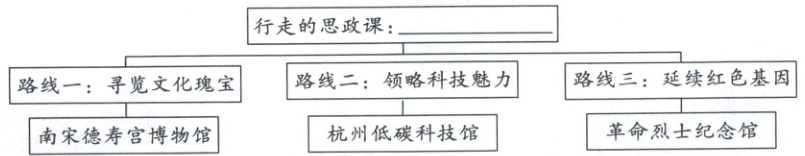 行走的思政课：____________
路线一：寻览文化瑰宝
路线二：领略科技魅力
路线三：延续红色基因
南宋德寿宫博物馆
杭州低碳科技馆
革命烈士纪念馆